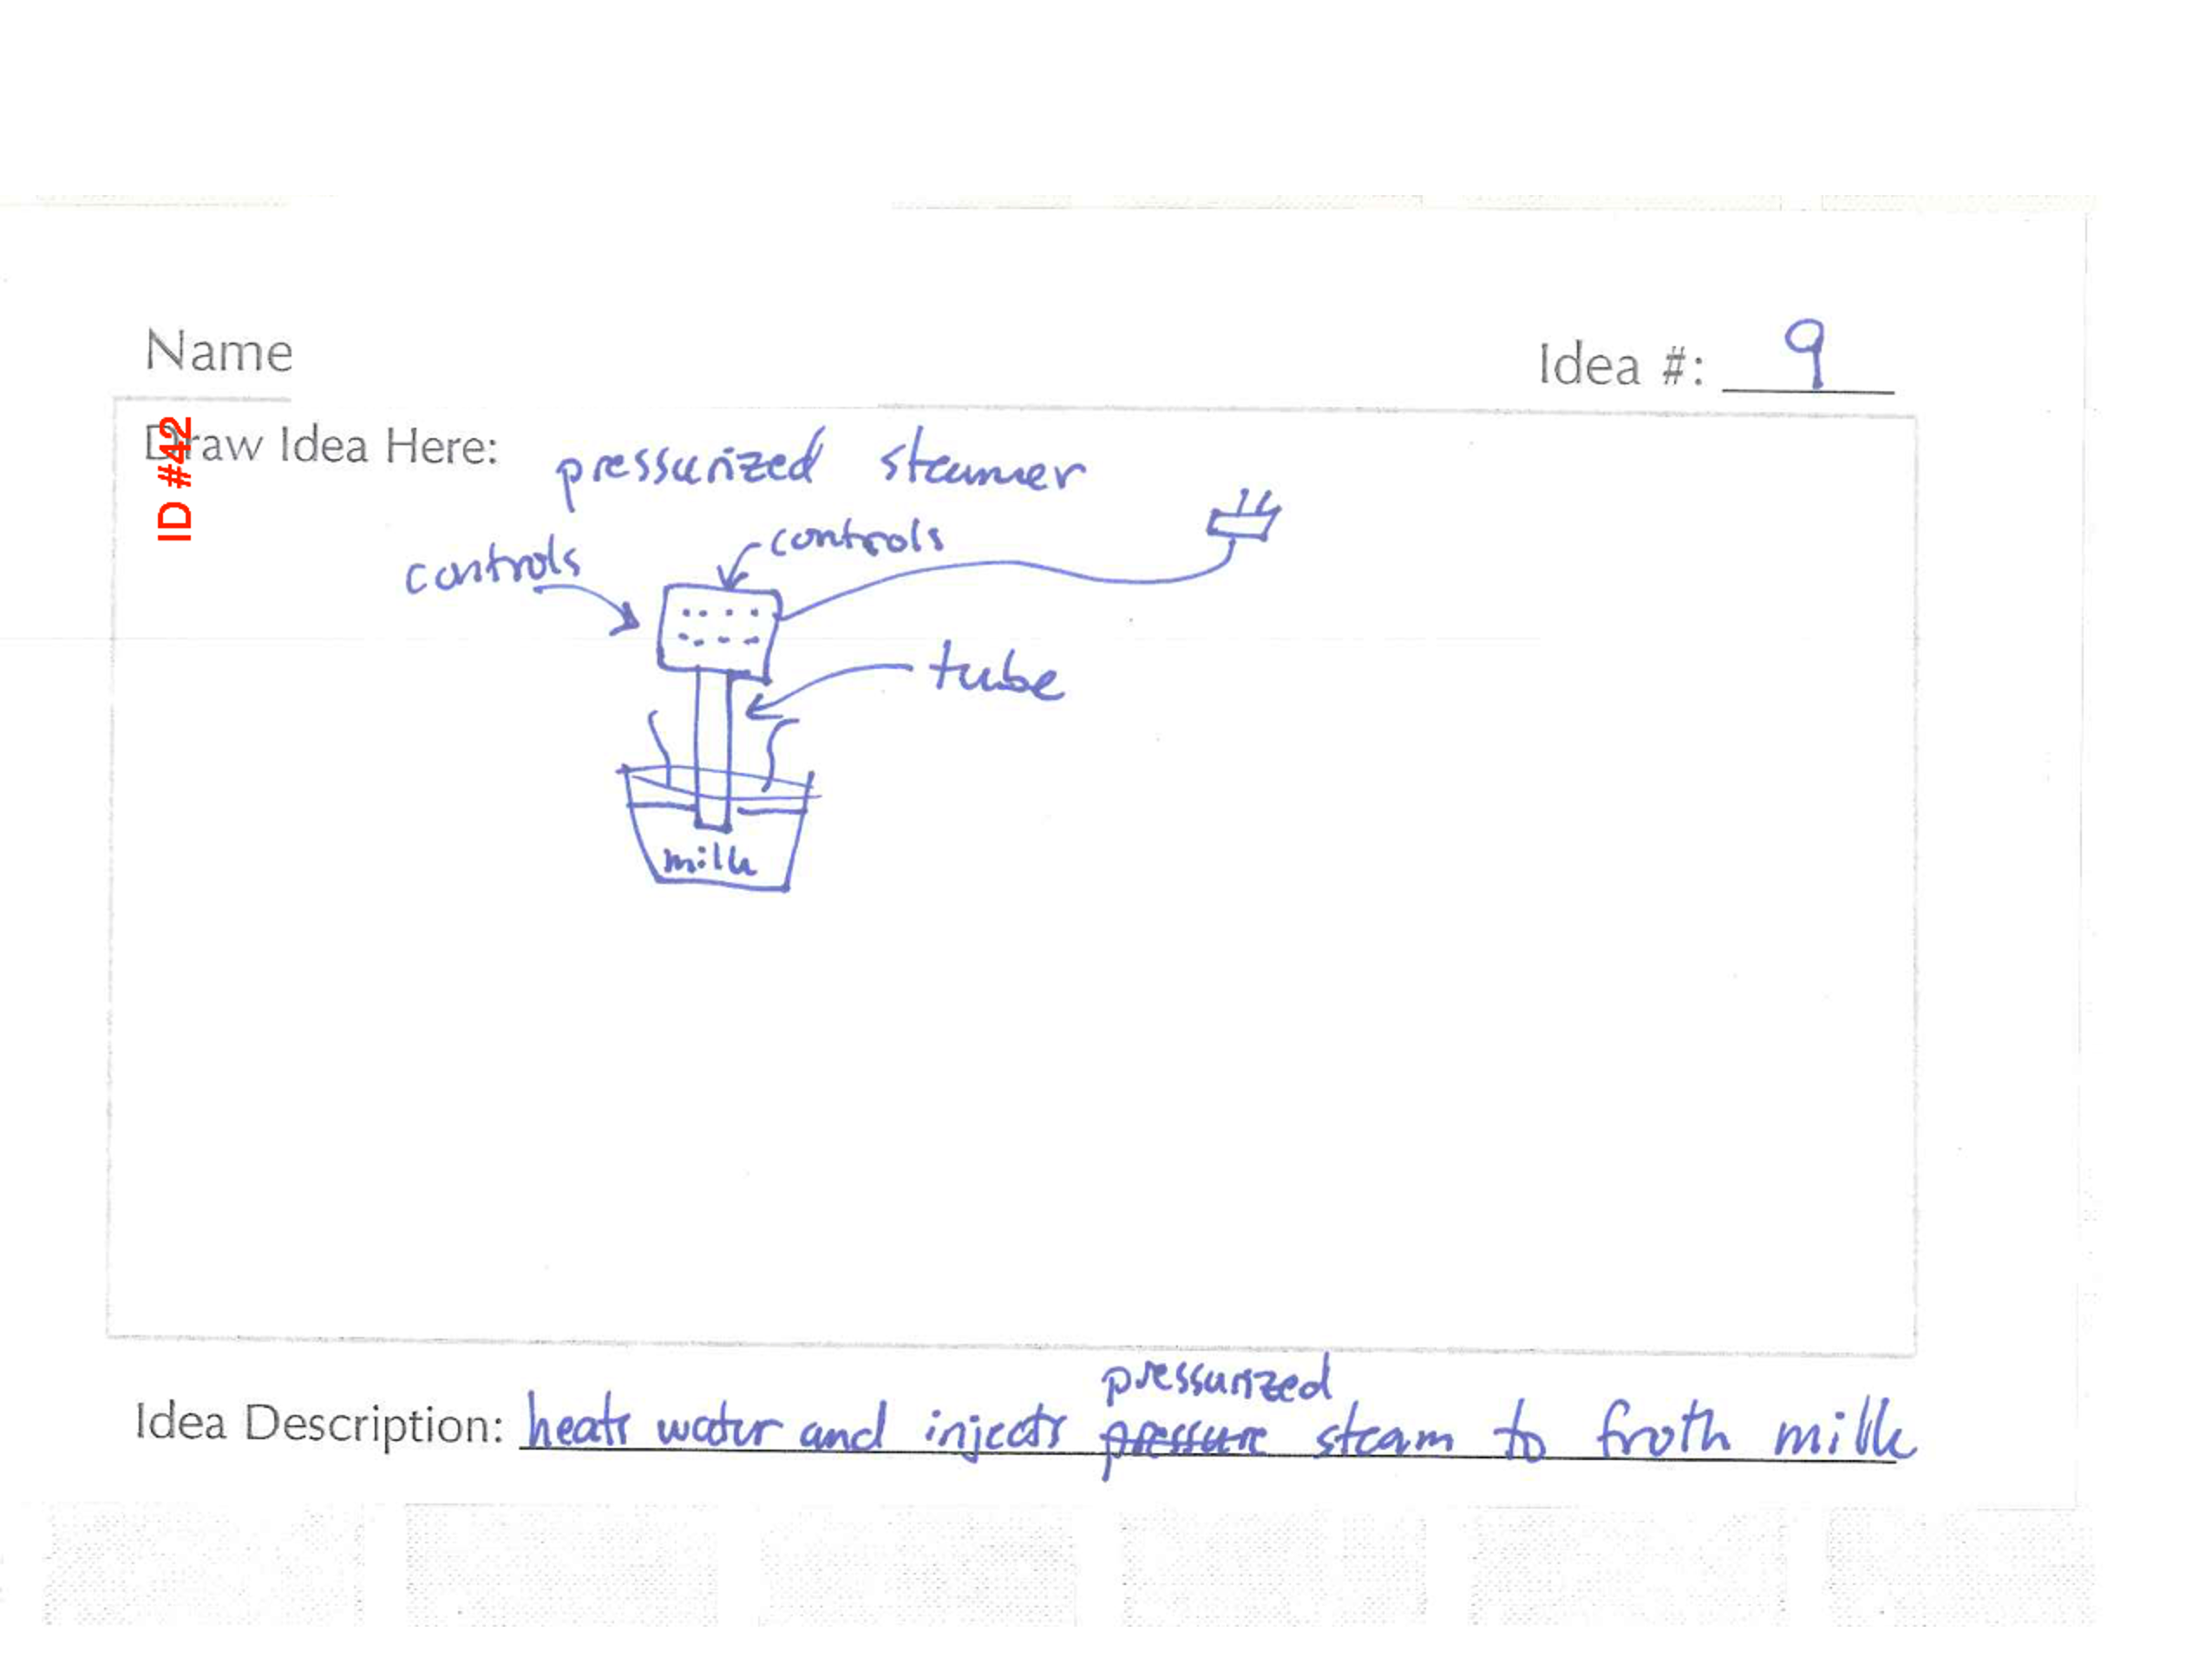 Name
Idea #: 9
ID #42
Draw Idea Here: pressurized steamer
controls
controls
tube
milk
pressurized
Idea Description: heats water and injects pressure steam to froth milk